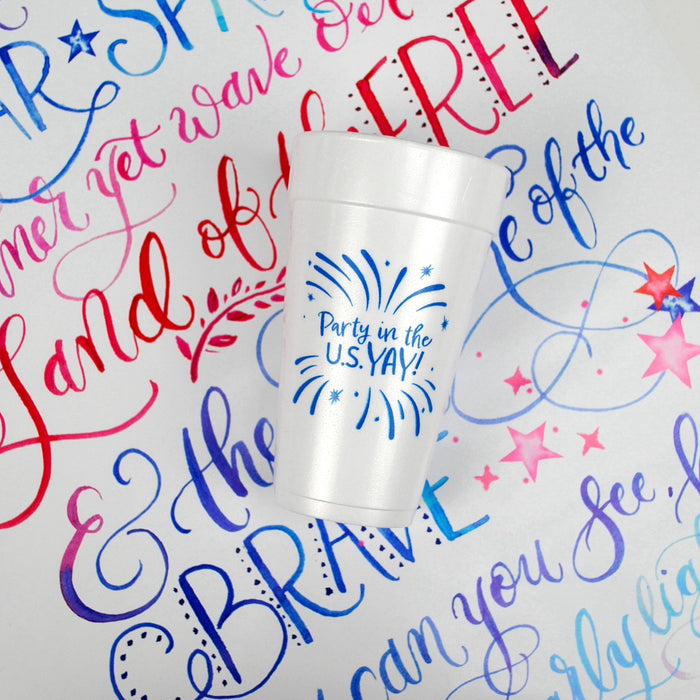 AR·SPA
ner yet wave
Land of the FREE
& the
e of the
BRAVE
can you see,
arly lig
Party in the
U.S. YAY!